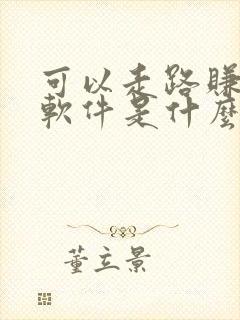 可以走路賺
軟件是什麼
董立景